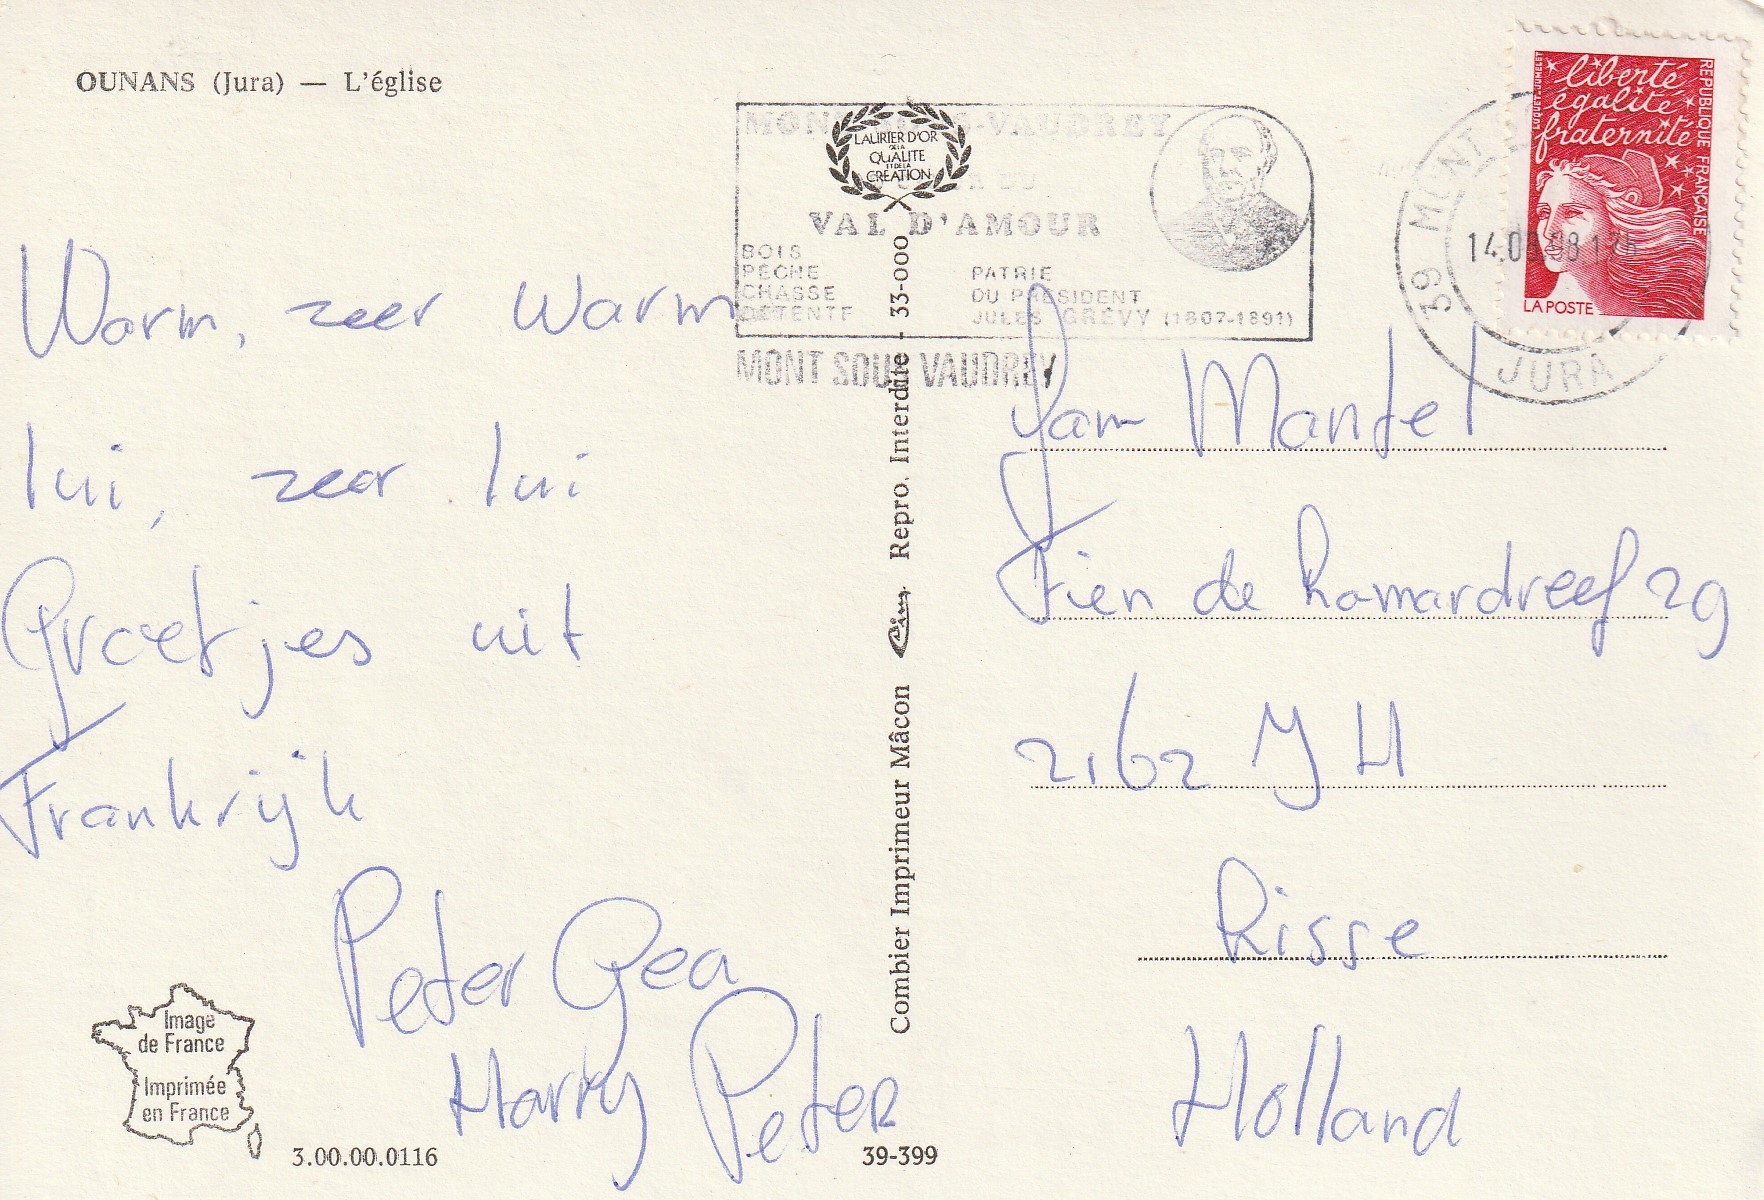 OUNANS (Jura) — L'église
Warm, zeer warm
lui, zeer lui
Groetjes uit
Frankrijk
Peter Gea
Harry Peter
Image
de France
Imprimée
en France
3.00.00.0116
39-399
Combier Imprimeur Mâcon Cim Repro. Interdite - 33-000
LAURIER D'OR
DE LA
QUALITE
ET DE LA
CREATION
VAL D'AMOUR
BOIS
PECHE
CHASSE
DETENTE
PATRIE
DU PRESIDENT
JULES GRÉVY (1807-1891)
MONT SOUS VAUDREY
39 MONT
JURA
liberté
égalité
fraternité
REPUBLIQUE FRANÇAISE
LUQUET-JUMELET
LA POSTE
Fam Mantel
Fien de Lamardreef 29
2162 JH
Lisse
Holland